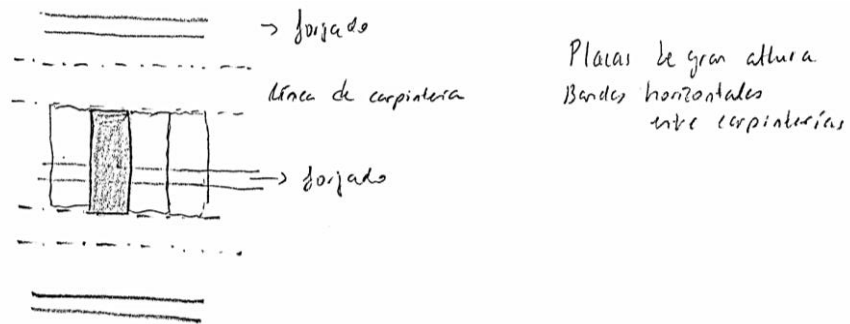 → forjado
Línea de carpintería
→ forjado
Placas de gran altura
Bandas horizontales
entre carpinterías